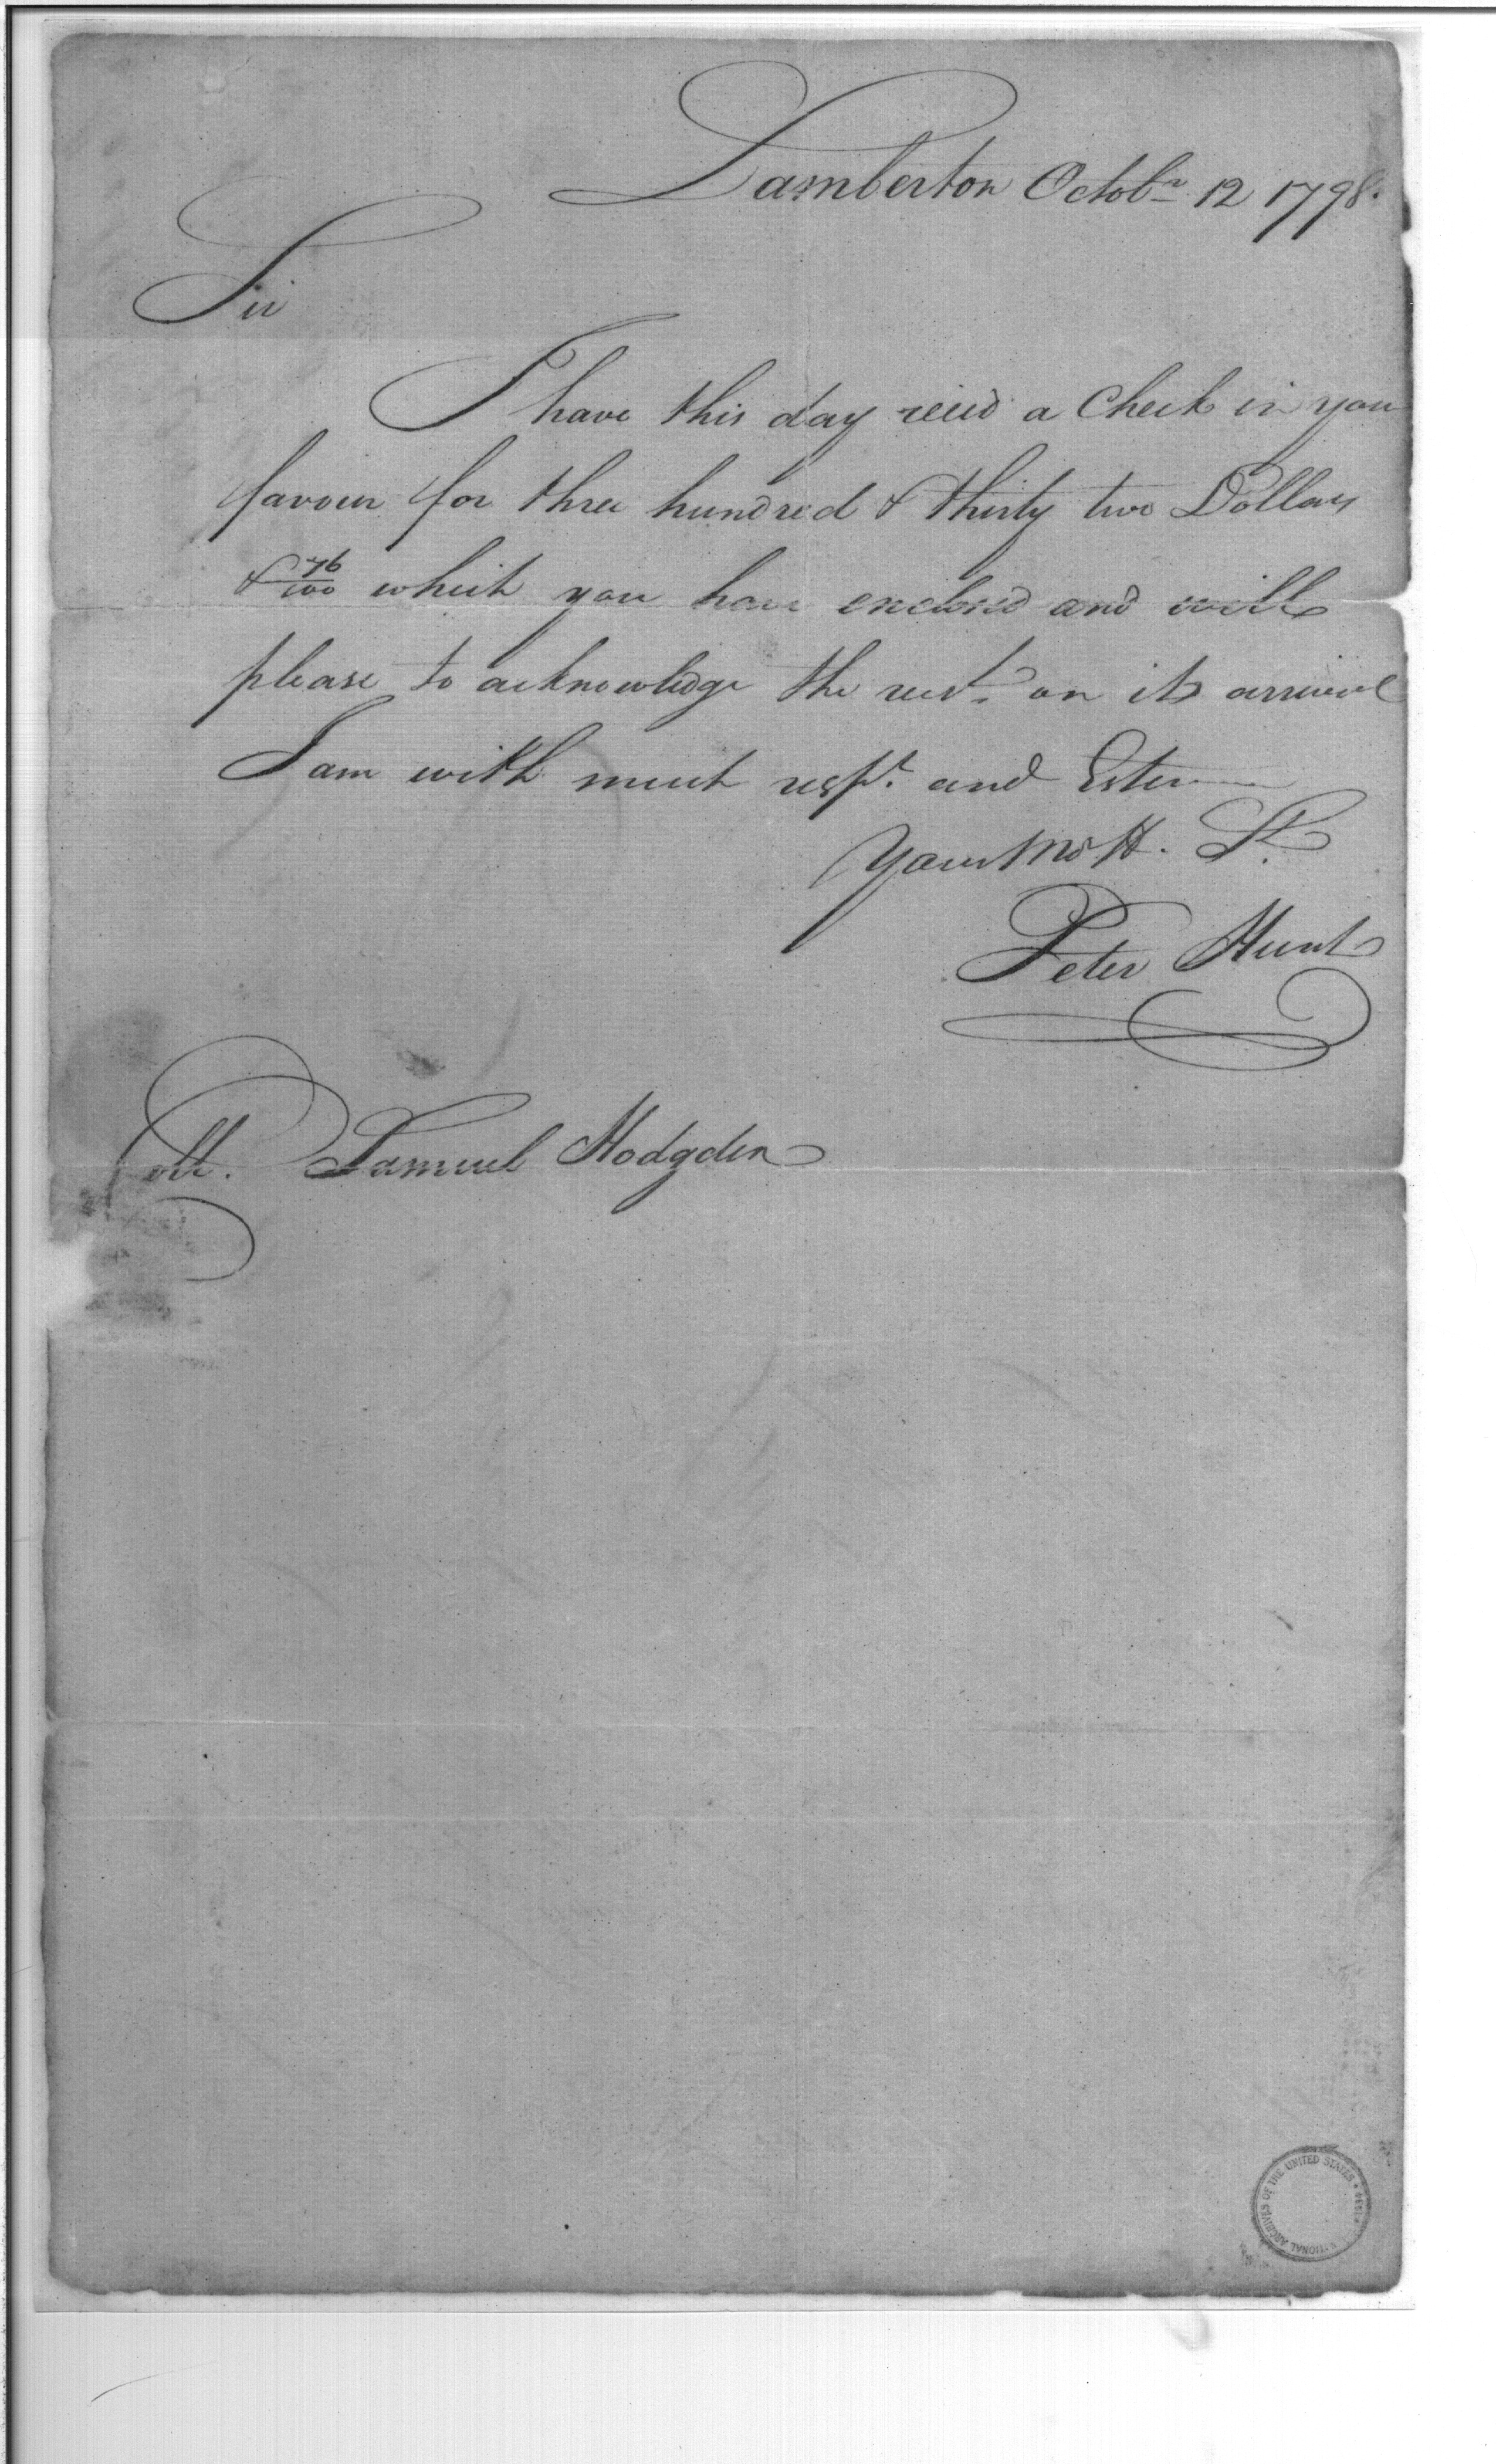 Lamberton Octobr. 12 1798.
Sir
I have this day recid a Check in your
favour for three hundred & thirty two Dollars
& 76/100 which you have enclosed and will
please to acknowledge the rect. on its arrival
I am with much respt. and Esteem
Your Mo H. St.
Peter Hunt
Samuel Hodgden
NATIONAL ARCHIVES OF THE UNITED STATES